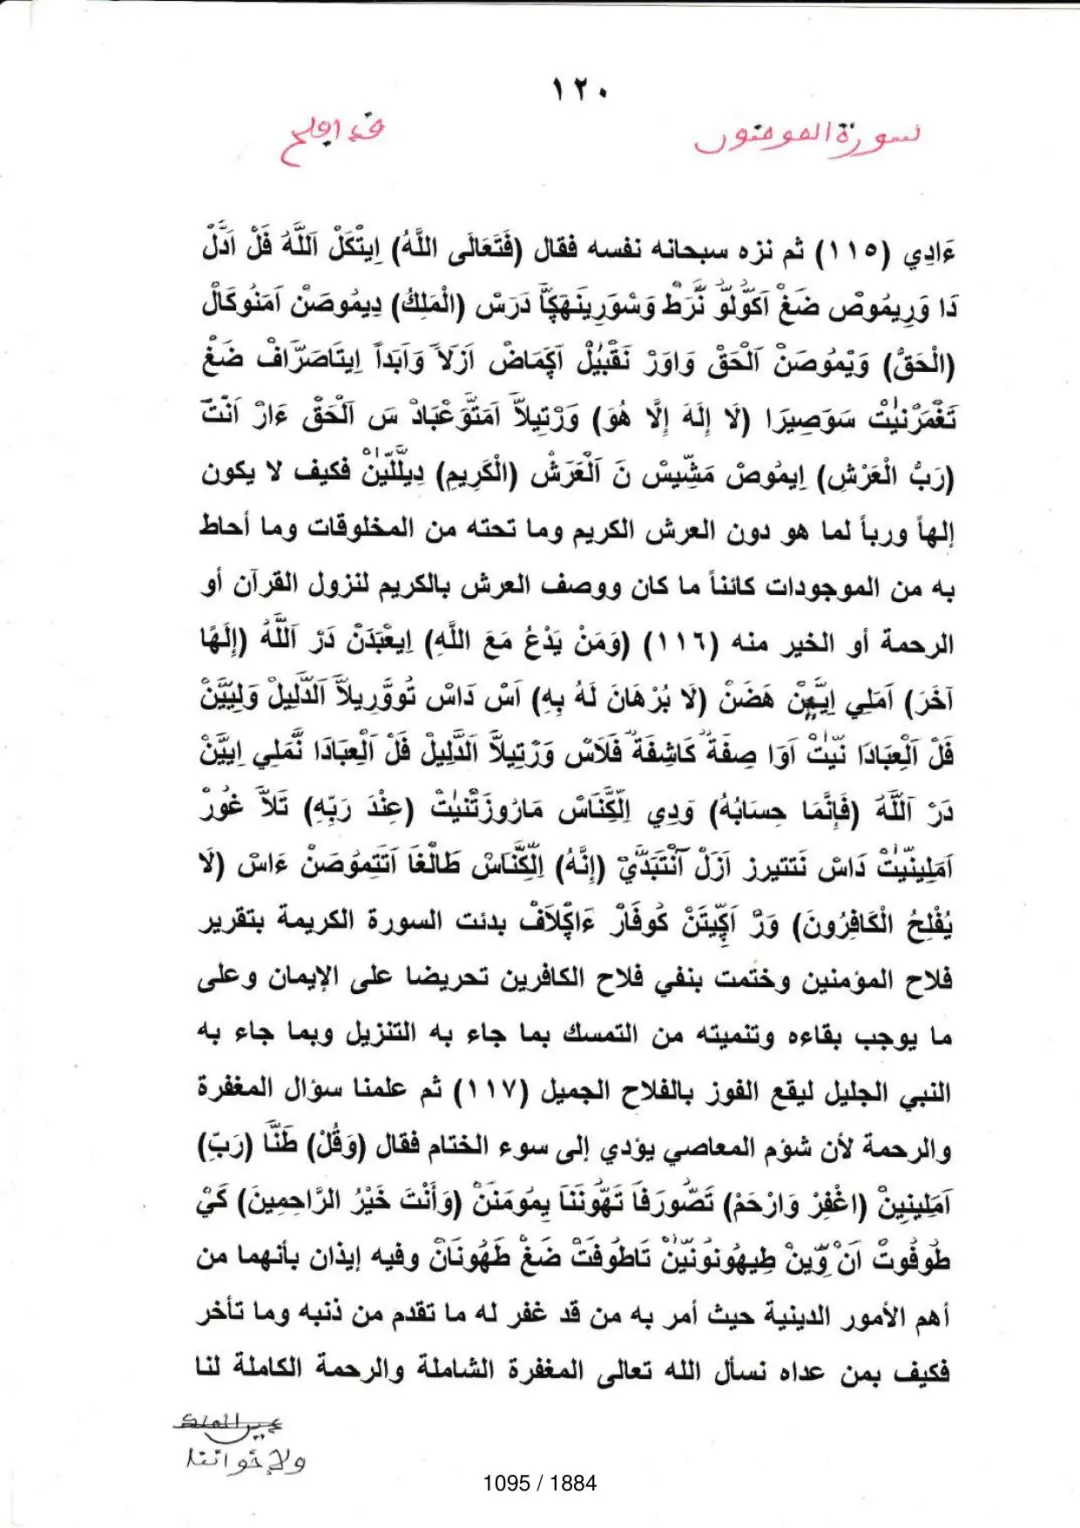 ١٢٠
سورة المومنون
قد افلح
ءَادِي (١١٥) ثم نزه سبحانه نفسه فقال (فَتَعَالَى اللَّهُ) اِيتْكَلْ اَللَّهُ فَلْ اَدَّلْ
دَا وَرِيمُوصْ ضَغْ اَكُولَوْ نَّرَطْ وَسْورِينَهَكَّا دَرَسْ (الْمَلِكُ) دِيمُوصَنْ اَمَنُوكَالْ
(الْحَقُّ) وَيْمُوصَنْ اَلْحَقْ وَاوَرْ نَقْبِيُلْ اَكِمَاضْ اَزَلاً وَاَبَداً اِيتَاصَرَّافْ ضَغْ
تَغْمَرْنِيْتْ سَوَصِيرَا (لَا إِلَهَ إِلَّا هُوَ) وَرْتِيلاَّ اَمَتَوَعْبَادْ سَ اَلْحَقْ ءَارْ اَنْتَ
(رَبُّ الْعَرْشِ) اِيمُوصْ مَشِّيسْ نَ اَلْعَرَشْ (الْكَرِيمِ) دِيلَّلَيَنْ فكيف لا يكون
إلهاً ورباً لما هو دون العرش الكريم وما تحته من المخلوقات وما أحاط
به من الموجودات كائناً ما كان ووصف العرش بالكريم لنزول القرآن أو
الرحمة أو الخير منه (١١٦) (وَمَنْ يَدْعُ مَعَ اللَّهِ) اِيعْبَدَنْ دَرْ اَللَّهُ (إِلَهًا
آخَرَ) اَمَلِي اِيَّهَنْ هَضَنْ (لَا بُرْهَانَ لَهُ بِهِ) اَسْ دَاسْ تُووَّرِيلاَّ اَلدَّلِيلْ وَلِيَيَنْ
فَلْ اَلْعِبَادَا نَيّتْ اَوَا صِفَةٌ كَاشِفَةٌ فَلَاسْ وَرْتِيلاَّ اَلدَّلِيلْ فَلْ اَلْعِبَادَا نَّمَلِي اِيَيَنْ
دَرْ اَللَّهُ (فَإِنَّمَا حِسَابُهُ) وَدِي اِلِكَّنَاسْ مَارُوزَتْنِيتْ (عِنْدَ رَبِّهِ) تَلاَّ غُورْ
اَمَلِينِيتْ دَاسْ نَتتيرز اَزَلْ اَنْتَبَدَّيْ (إِنَّهُ) اِلِكَّنَاسْ طَالْغَا اَتتِمُوصَنْ ءَاسْ (لَا
يُفْلِحُ الْكَافِرُونَ) وَرَّ اَكِّيتَنْ كُوفَارْ ءَاكِلَافْ بدئت السورة الكريمة بتقرير
فلاح المؤمنين وختمت بنفي فلاح الكافرين تحريضا على الإيمان وعلى
ما يوجب بقاءه وتنميته من التمسك بما جاء به التنزيل وبما جاء به
النبي الجليل ليقع الفوز بالفلاح الجميل (١١٧) ثم علمنا سؤال المغفرة
والرحمة لأن شؤم المعاصي يؤدي إلى سوء الختام فقال (وَقُلْ) طَنَّا (رَبِّ)
اَمَلِينِينْ (اغْفِرْ وَارْحَمْ) تَصُّورَفَا تَهُّونَنَا يِمُومَنَنْ (وَأَنْتَ خَيْرُ الرَّاحِمِينَ) كَيْ
طُوفُوتْ اَنْ وَّينْ طِيهُونُونَيَنْ تَاطُوفَتْ ضَغْ طَهُونَانْ وفيه إيذان بأنهما من
أهم الأمور الدينية حيث أمر به من قد غفر له ما تقدم من ذنبه وما تأخر
فكيف بمن عداه نسأل الله تعالى المغفرة الشاملة والرحمة الكاملة لنا
ولإخواننا
1095 / 1884